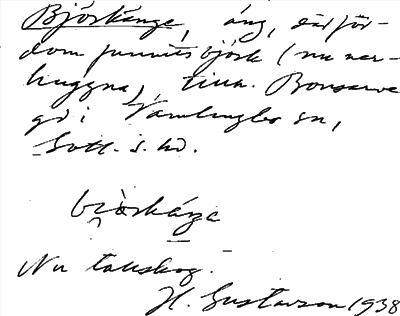 Björkänge, äng, där för-
dom funnits björk (nu ner-
huggna), tillh. Bonsarve
gd i Vamlingbo sn,
Gotl. s. hd.
Nu tallskog.
H. Gustavson 1938